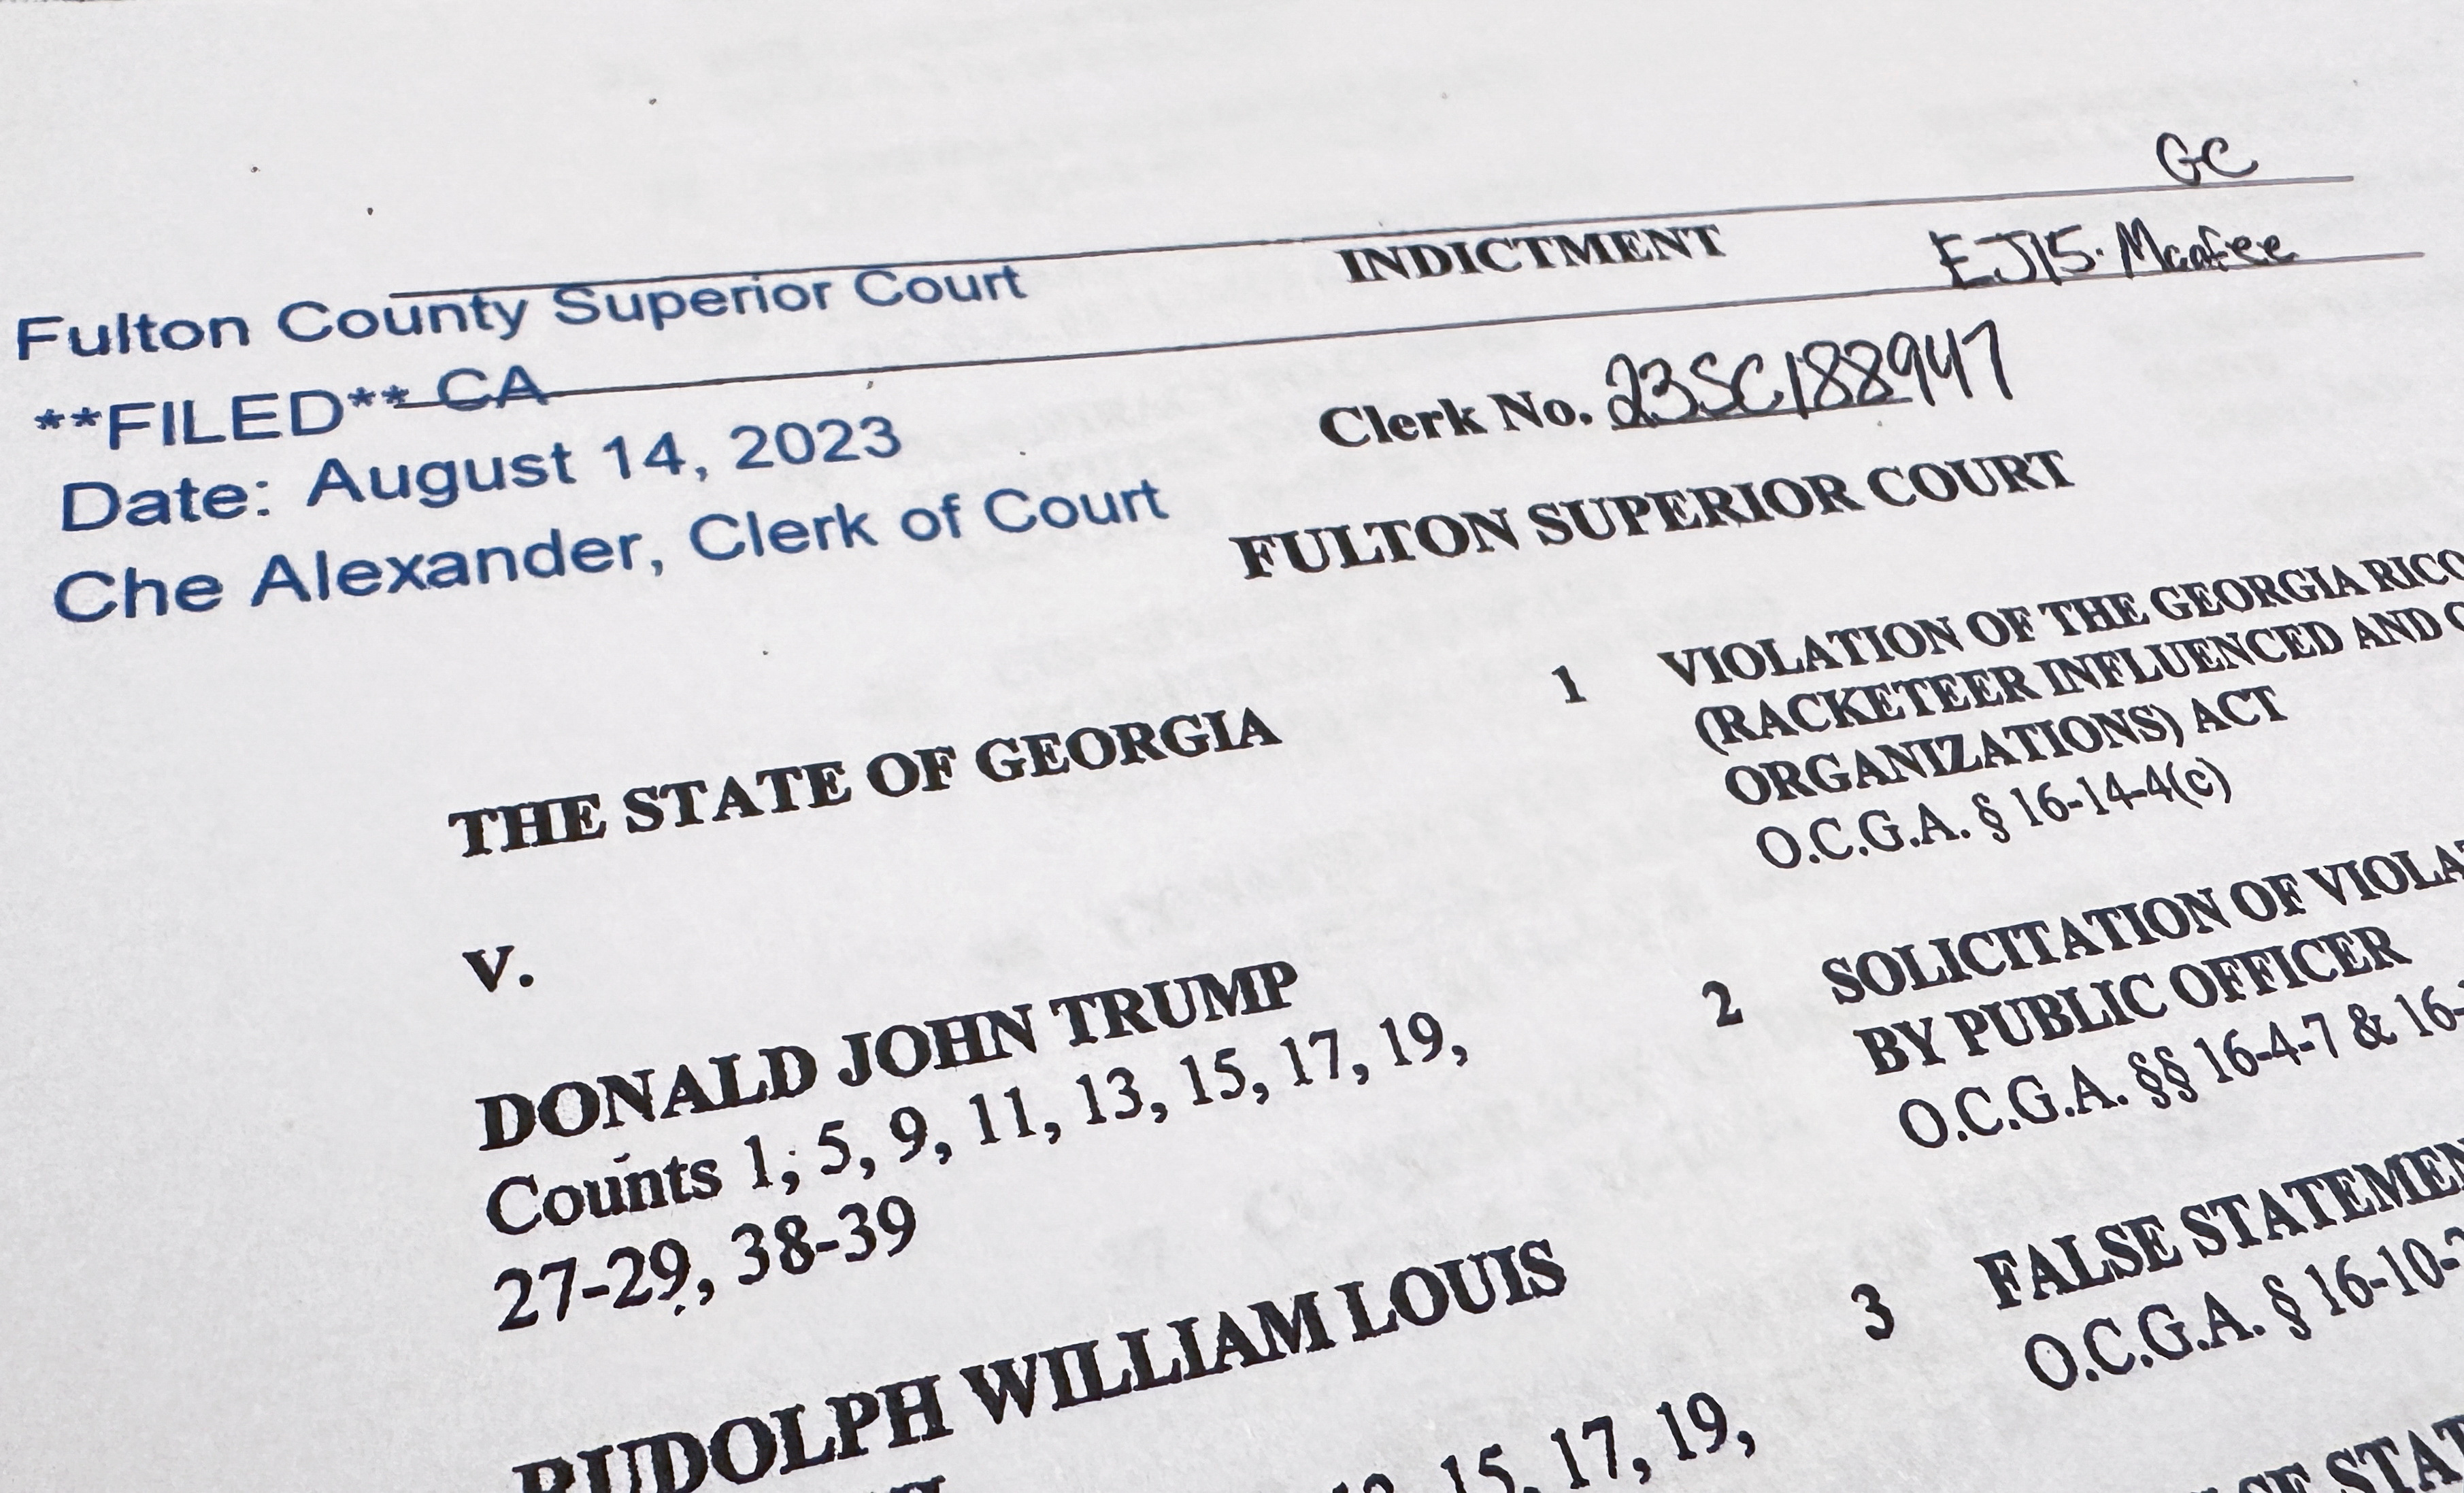 GC
INDICTMENT
EJ15. Mcafee
Fulton County Superior Court
**FILED** CA
Date: August 14, 2023
Che Alexander, Clerk of Court
Clerk No. 23SC188947
FULTON SUPERIOR COURT
THE STATE OF GEORGIA
v.
DONALD JOHN TRUMP
Counts 1, 5, 9, 11, 13, 15, 17, 19,
27-29, 38-39
RUDOLPH WILLIAM LOUIS
15, 17, 19,
1 VIOLATION OF THE GEORGIA RICO
(RACKETEER INFLUENCED AND
ORGANIZATIONS) ACT
O.C.G.A. § 16-14-4(c)
2 SOLICITATION OF
BY PUBLIC OFFICER
O.C.G.A. §§ 16-4-7 & 16-
3 FALSE
O.C.G.A. § 16-10-